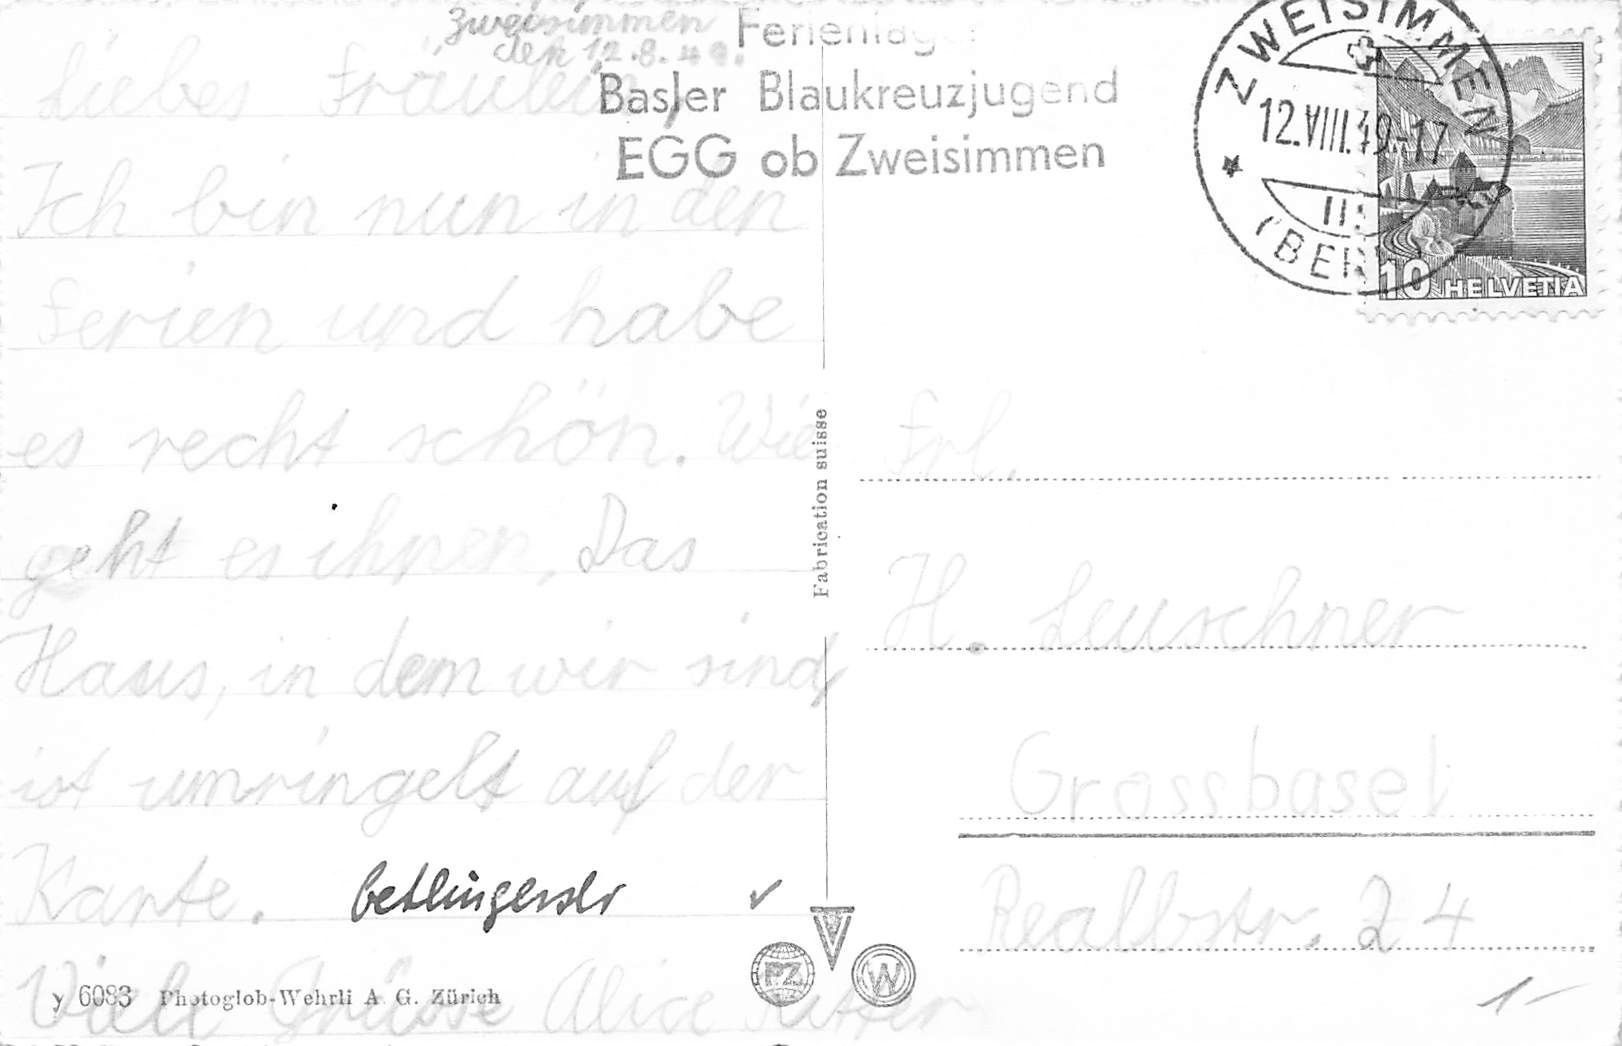 Zweisimmen
den 12.8.49.
Liebes Fräulein
Ich bin nun in den
Ferien und habe
es recht schön. Wie
geht es ihnen, Das
Haus, in dem wir sind
ist umringelt auf der
Karte.
Viele Grüsse Alice
Ferienlager
Basler Blaukreuzjugend
EGG ob Zweisimmen
ZWEISIMMEN
12.VIII.49.-17
(BERN)
10 HELVETIA
Fabrication suisse
Frl.
H. Leuschner
Grossbasel
Realbstr. 24
y 6083 Photoglob-Wehrli A. G. Zürich
PZ
W
1-